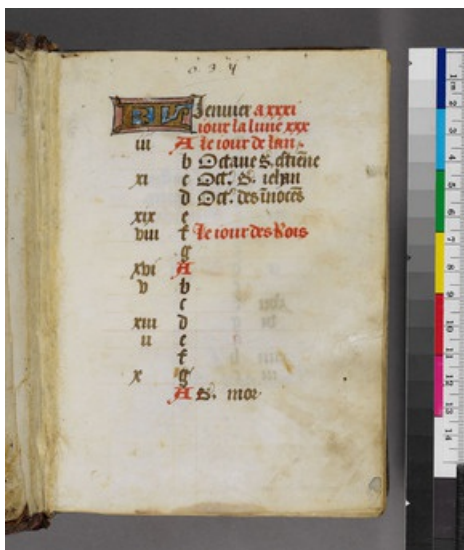 o 3 4
KL Jenuier a xxxi
iour la lune xxx
iii A Le iour de lan
b Octaue S. estiene
xi c Oct. S. iehan
d Oct. des inoces
xix e
viii f Le iour des Rois
g
xvi A
v b
c
xiii d
ii e
f
x g
A S. mor
1 2 3 4 5 6 7 8 9 10 11 12 13 14